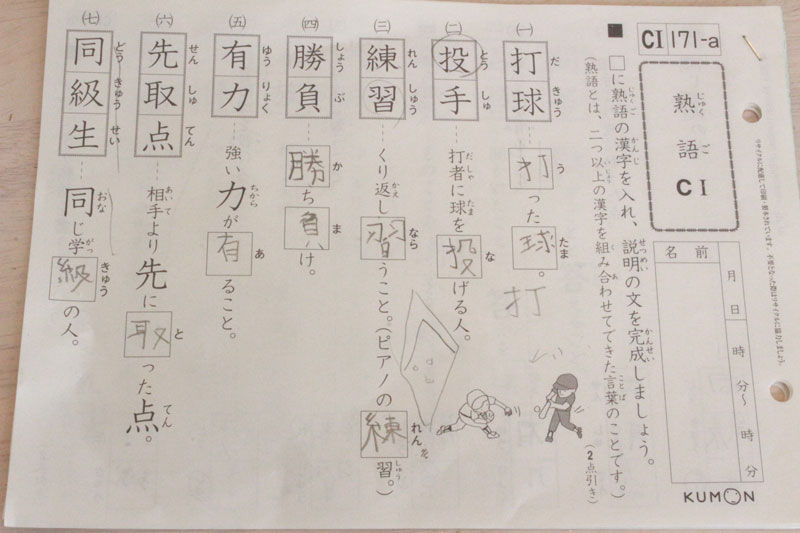 CI 171-a
熟語CI
名前
月 日
時 分〜 時 分
KUMON
■ □に熟語の漢字を入れ、説明の文を完成しましょう。
(熟語とは、二つ以上の漢字を組み合わせてできた言葉のことです。)
(2点引き)
(一) 打球……打った球。
打
(二) 投手……打者に球を投げる人。
(三) 練習……くり返し習うこと。(ピアノの練習。)
(四) 勝負……勝ち負け。
(五) 有力……強い力が有ること。
(六) 先取点……相手より先に取った点。
(七) 同級生……同じ学級の人。